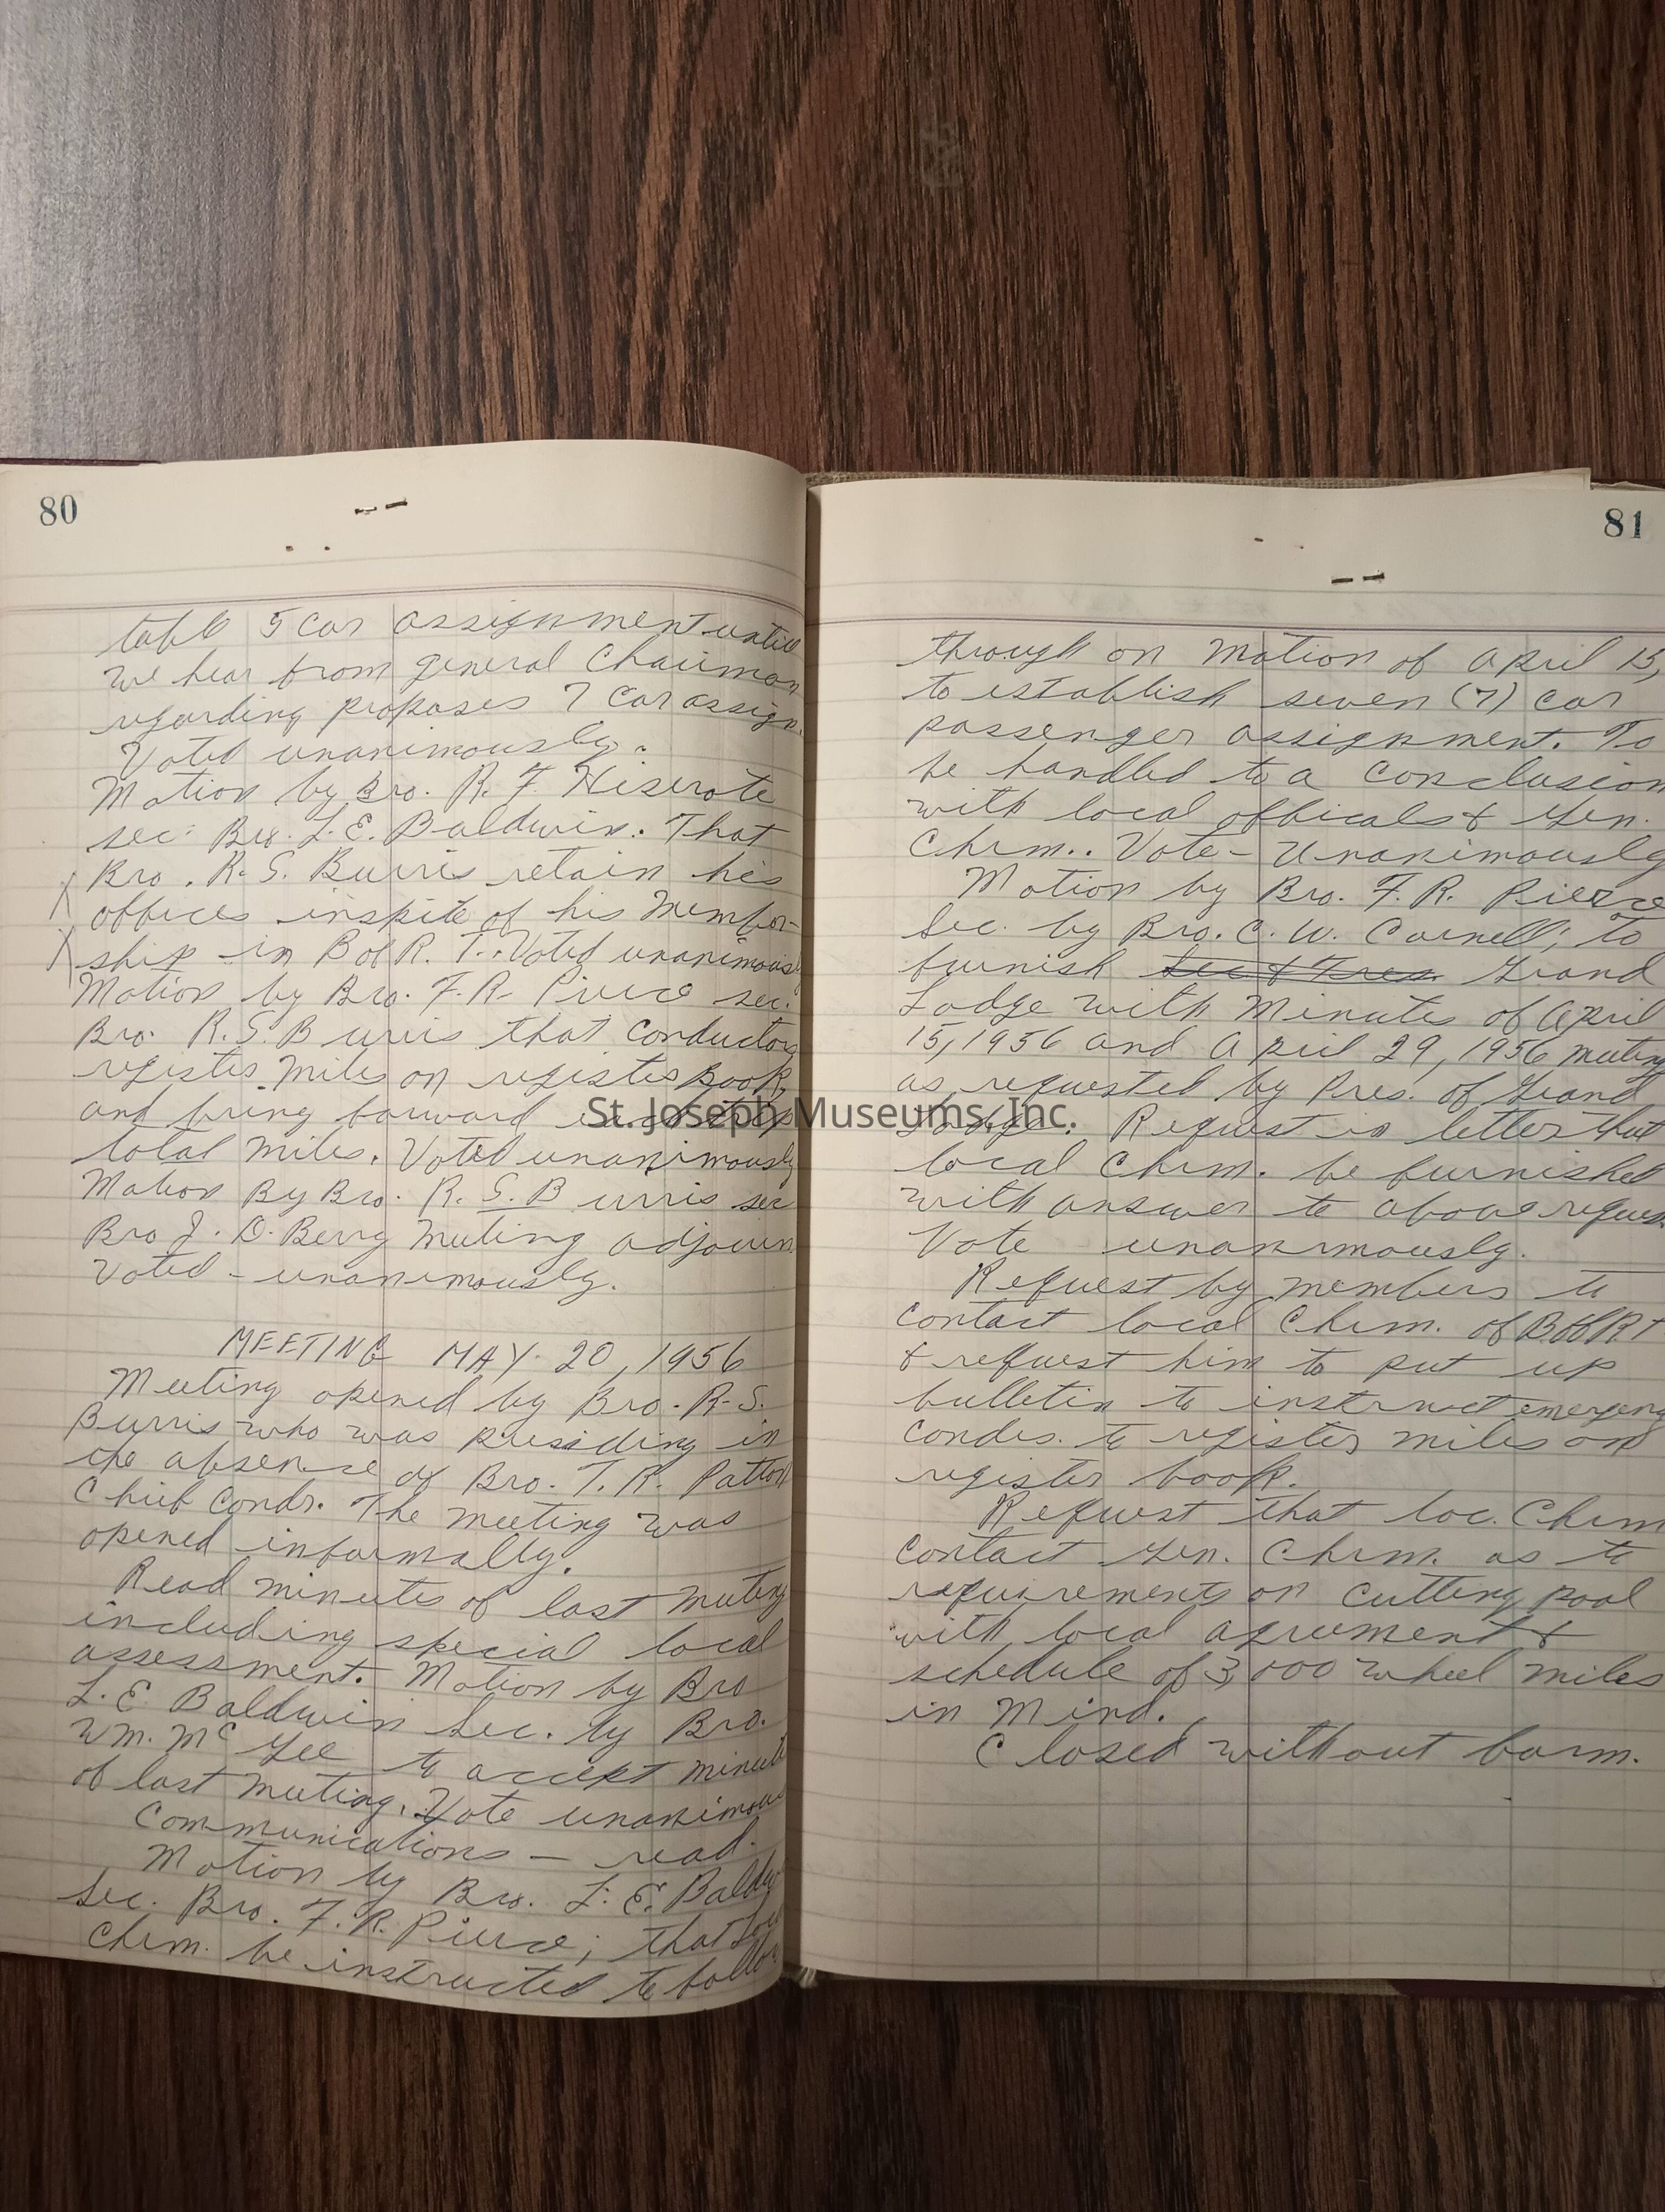 80
table 5 car assignment until
we hear from general Chairman
regarding proposes 7 Car assign.
Voted unanimously.
Motion by Bro. R. F. Hiserote
sec. Bro. L. E. Baldwin. That
Bro. R. S. Burris retain his
offices inspite of his Member-
ship in B of R. T. Voted unanimously
Motion by Bro. F. R. Pierce sec.
Bro. R. S. Burris that conductors
register miles on register Book
and bring forward
total miles. Voted unanimously
Motion By Bro. R. S. Burris sec
Bro J. D. Berry Meeting adjourn
Voted - unanimously.
MEETING MAY 20, 1956
Meeting opened by Bro. R. S.
Burris who was presiding in
the absence of Bro. T. R. Patton
Chief Condr. The meeting was
opened informally.
Read minutes of last meeting
including special local
assessment. Motion by Bro
L. E. Baldwin Sec. by Bro.
Wm. Mc Gee to accept minutes
of last meeting. Vote unanimous
Communications - read.
Motion by Bro. L. E. Baldw
Sec. Bro. F. R. Pierce; that
Chrm. be instructed to follow
81
through on Motion of April 15,
to establish seven (7) car
passenger assignment. To
be handled to a conclusion
with local officals & Gen.
Chrm.. Vote - Unanimously
Motion by Bro. F. R. Pierce
Sec. by Bro. C. W. Cornell; to
furnish Sec & Tres. Grand
Lodge with Minutes of April
15, 1956 and April 29, 1956 meeting
as requested by Pres. of Grand
Lodge. Request in letter that
local Chrm. be furnished
with answer to above request
Vote unanimously.
Request by members to
contact local Chrm. of B of R T
& request him to put up
bulletin to instruct emergency
Condrs. to register miles on
register book.
Request that loc. Chrm
contact Gen. Chrm. as to
requirements on cutting pool
with local agreement &
schedule of 3,000 wheel miles
in Mind.
Closed without form.
St. Joseph Museums, Inc.